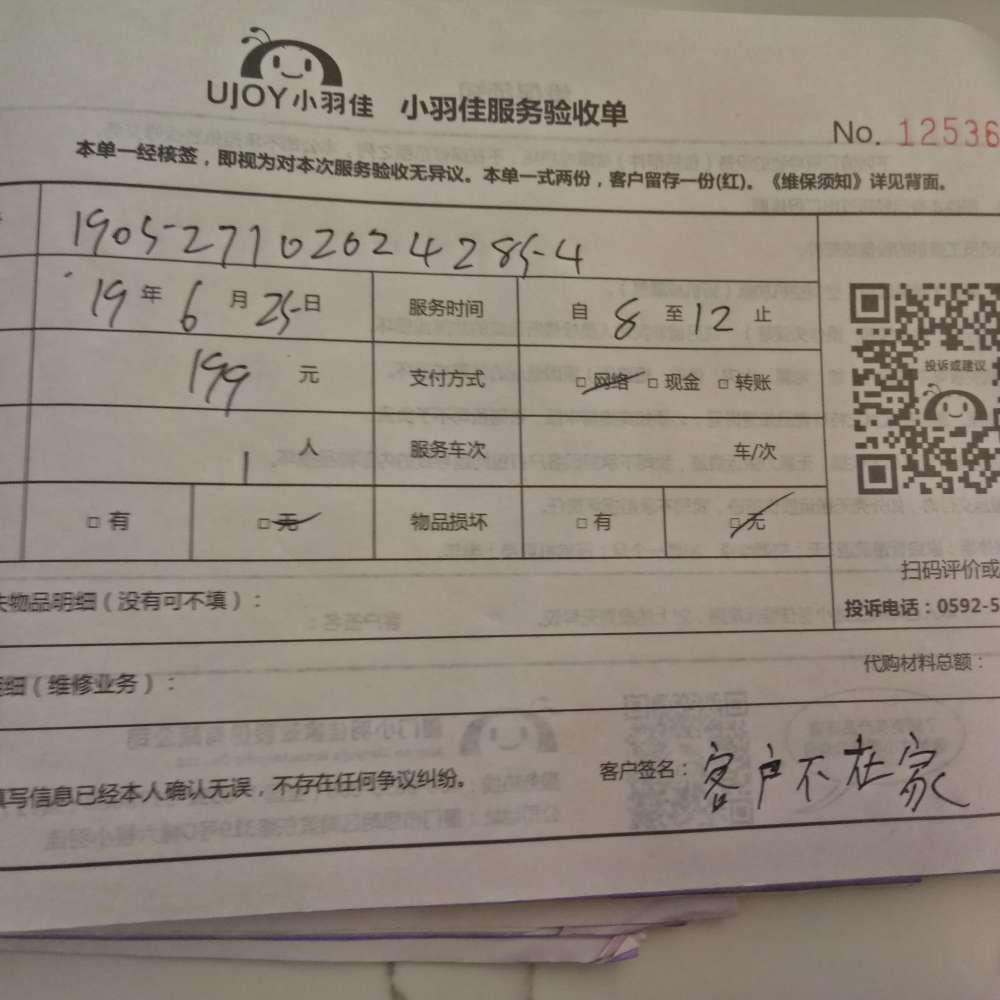 UJOY小羽佳 小羽佳服务验收单
No. 12536
本单一经核签，即视为对本次服务验收无异议。本单一式两份，客户留存一份(红)。《维保须知》详见背面。
1905-271020242 85-4
19年6月25日 服务时间 自8至12止
199元 支付方式 □网络 □现金 □转账
投诉或建议
1人 服务车次 车/次
□有 □无 物品损坏 □有 □无
扫码评价或
物品明细（没有可不填）：
投诉电话：0592-5
细（维修业务）：
代购材料总额：
写信息已经本人确认无误，不存在任何争议纠纷。
客户签名：客户不在家